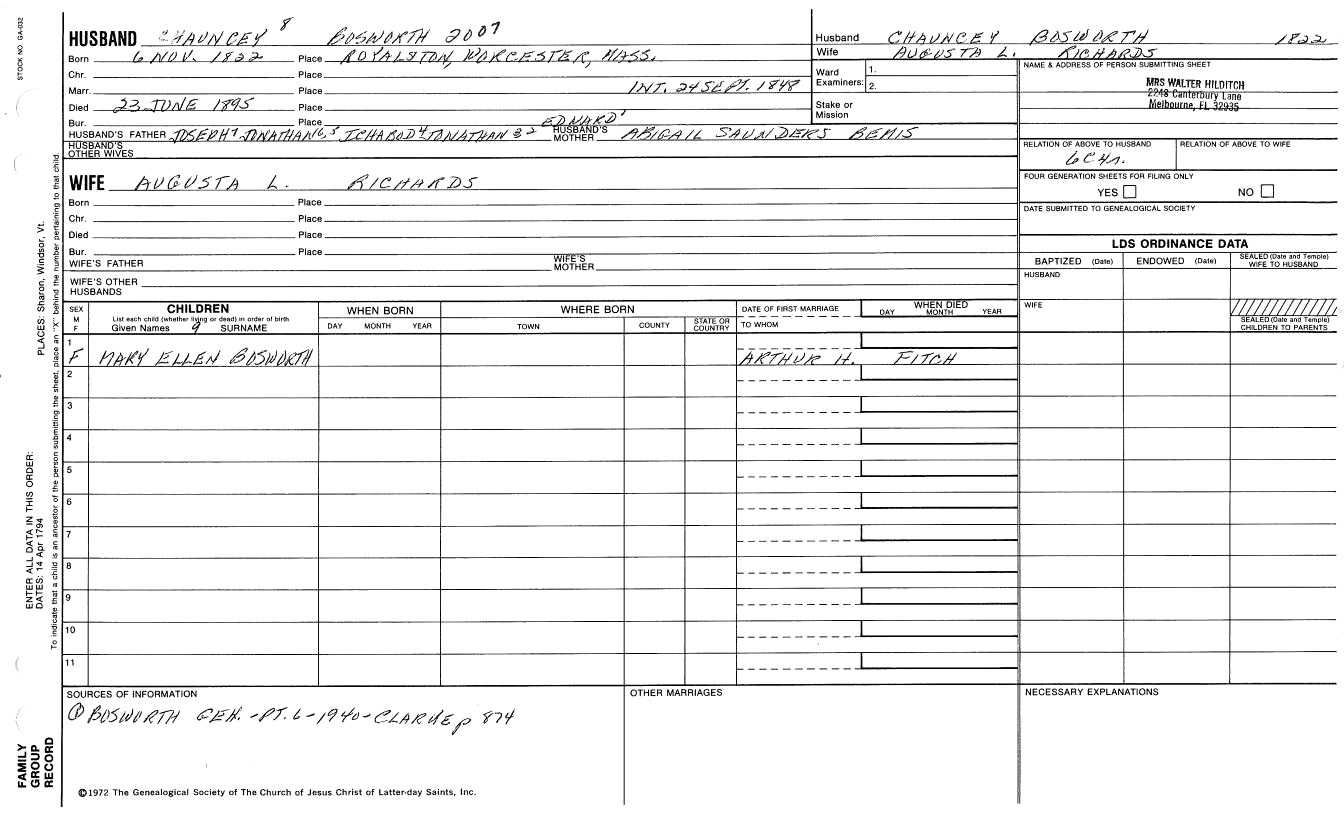 STOCK NO. GA-032
HUSBAND CHAUNCEY 8 BOSWORTH 2007
Born 6 NOV. 1822 Place ROYALSTON, WORCESTER, MASS.
Chr. Place
Marr. Place INT. 24 SEPT. 1848
Died 23 JUNE 1895 Place
Bur. Place EDWARD 1
HUSBAND'S FATHER JOSEPH 7, JONATHAN 6,5 ICHABOD 4, JONATHAN 3 2 HUSBAND'S MOTHER ABIGAIL SAUNDERS BEMIS
HUSBAND'S OTHER WIVES
WIFE AUGUSTA L. RICHARDS
Born Place
Chr. Place
Died Place
Bur. Place
WIFE'S FATHER WIFE'S MOTHER
WIFE'S OTHER HUSBANDS
Husband CHAUNCEY BOSWORTH 1822
Wife AUGUSTA L. RICHARDS
Ward Examiners: 1.
2.
Stake or Mission
NAME & ADDRESS OF PERSON SUBMITTING SHEET
MRS WALTER HILDITCH
2248 Canterbury Lane
Melbourne, FL 32935
RELATION OF ABOVE TO HUSBAND RELATION OF ABOVE TO WIFE
6C4r.
FOUR GENERATION SHEETS FOR FILING ONLY
YES NO
DATE SUBMITTED TO GENEALOGICAL SOCIETY
LDS ORDINANCE DATA
BAPTIZED (Date) ENDOWED (Date) SEALED (Date and Temple) WIFE TO HUSBAND
HUSBAND
WIFE
SEALED (Date and Temple) CHILDREN TO PARENTS
SEX M F
CHILDREN
List each child (whether living or dead) in order of birth
Given Names 9 SURNAME
WHEN BORN
DAY MONTH YEAR
WHERE BORN
TOWN COUNTY STATE OR COUNTRY
DATE OF FIRST MARRIAGE
TO WHOM
WHEN DIED
DAY MONTH YEAR
1
F MARY ELLEN BOSWORTH ARTHUR H. FITCH
2
3
4
5
6
7
8
9
10
11
SOURCES OF INFORMATION
① BOSWORTH GEN. - PT. 6 - 1940 - CLARKE p 874
OTHER MARRIAGES
NECESSARY EXPLANATIONS
©1972 The Genealogical Society of The Church of Jesus Christ of Latter-day Saints, Inc.
ENTER ALL DATA IN THIS ORDER:
DATES: 14 Apr 1794 PLACES: Sharon, Windsor, Vt.
To indicate that a child is an ancestor of the person submitting the sheet, place an "X" behind the number pertaining to that child
FAMILY
GROUP
RECORD